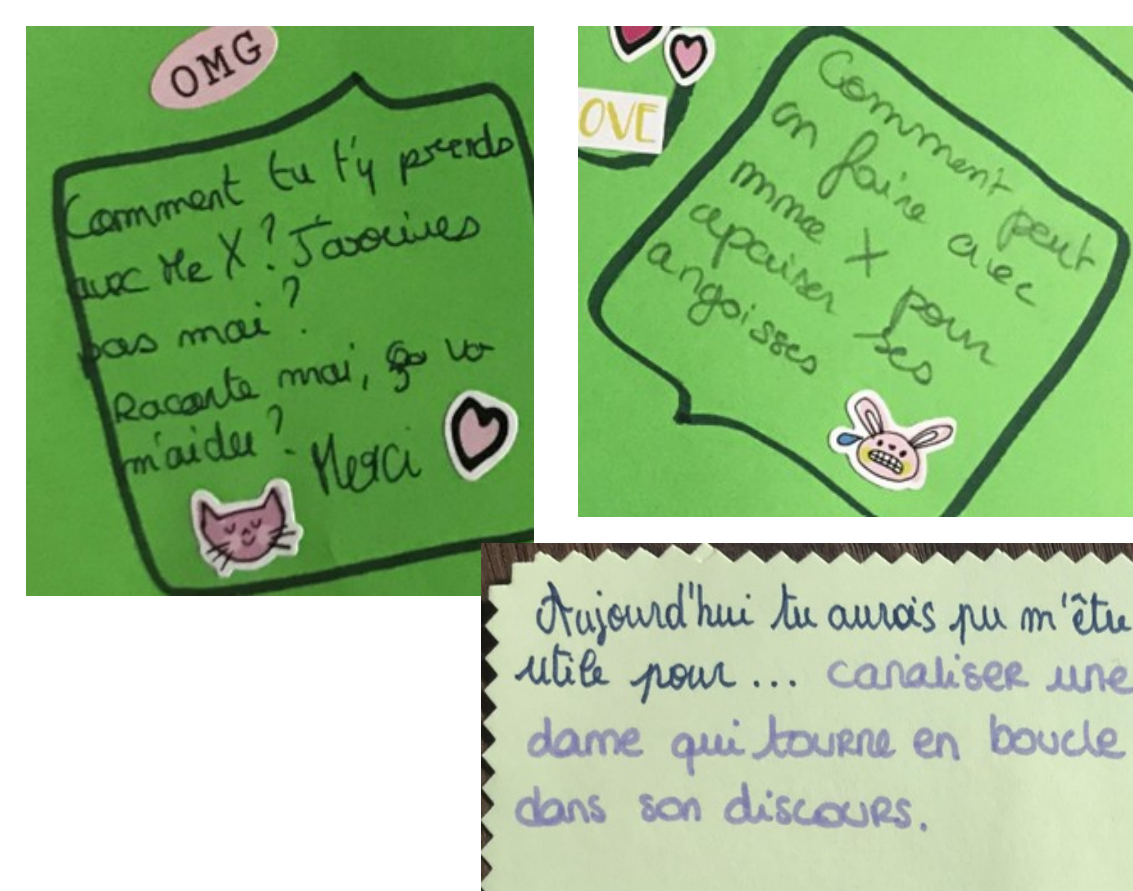 OMG
Comment tu t'y prends
avec Me X ? J'arrives
pas moi ?
Raconte moi, ça va
m'aider ?
Merci
OVE
Comment peut
on faire avec
mme X pour
apaiser ses
angoisses
Aujourd'hui tu aurais pu m'être
utile pour... canaliser une
dame qui tourne en boucle
dans son discours.